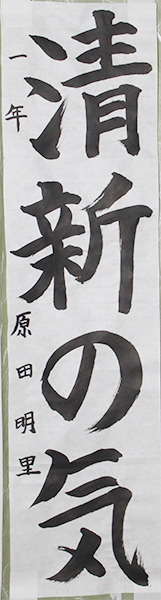 清新の気
一年 原田明里